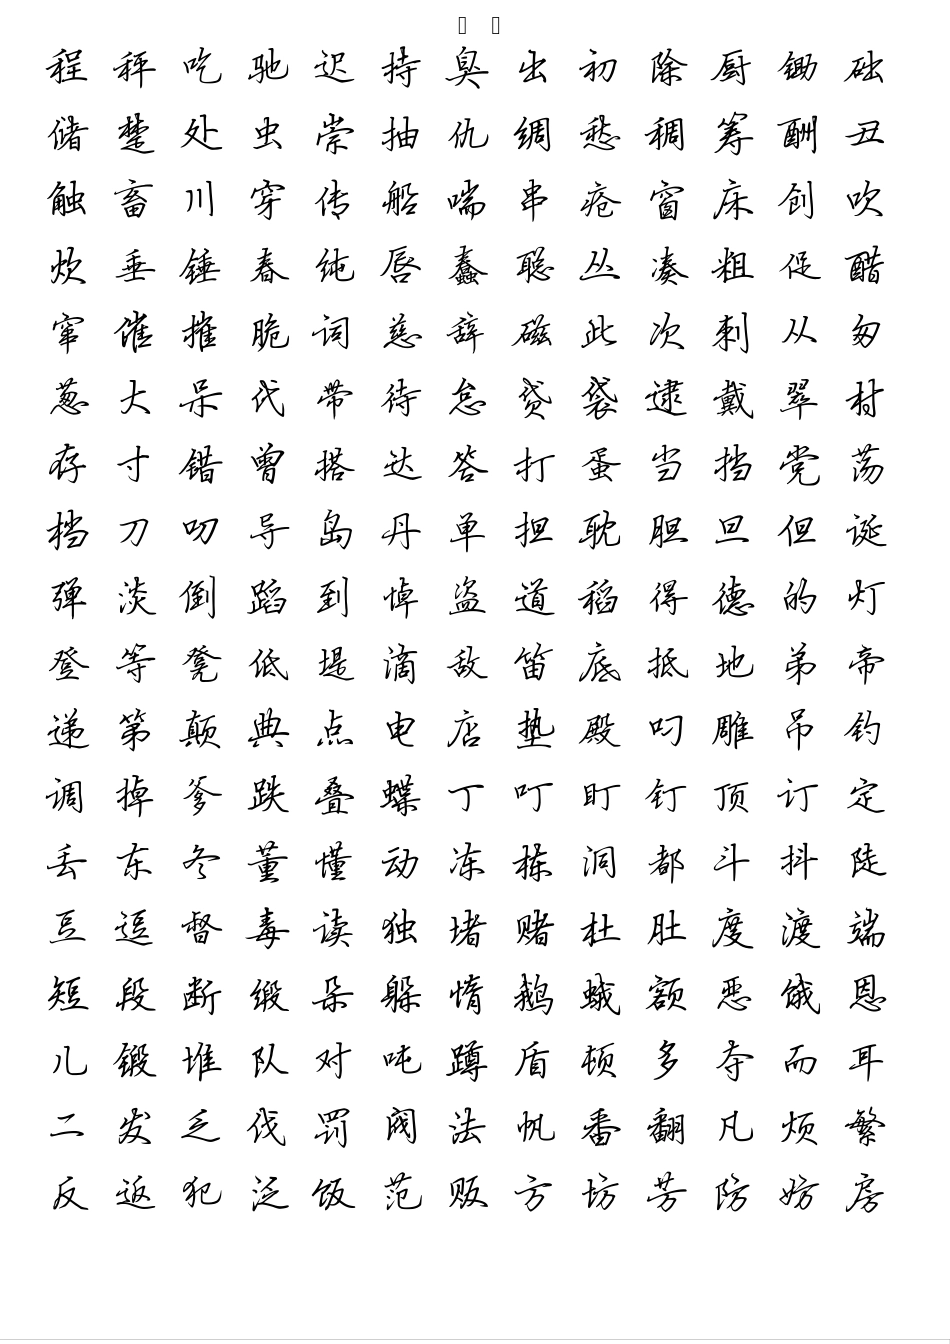 程 秤 吃 驰 迟 持 臭 出 初 除 厨 锄 础
储 楚 处 虫 崇 抽 仇 绸 愁 稠 筹 酬 丑
触 畜 川 穿 传 船 喘 串 疮 窗 床 创 吹
炊 垂 锤 春 纯 唇 蠢 聪 丛 凑 粗 促 醋
窜 催 摧 脆 词 慈 辞 磁 此 次 刺 从 匆
葱 大 呆 代 带 待 怠 贷 袋 逮 戴 翠 村
存 寸 错 曾 搭 达 答 打 蛋 当 挡 党 荡
档 刀 叨 导 岛 丹 单 担 耽 胆 旦 但 诞
弹 淡 倒 蹈 到 悼 盗 道 稻 得 德 的 灯
登 等 凳 低 堤 滴 敌 笛 底 抵 地 弟 帝
递 第 颠 典 点 电 店 垫 殿 叼 雕 吊 钓
调 掉 爹 跌 叠 蝶 丁 叮 盯 钉 顶 订 定
丢 东 冬 董 懂 动 冻 栋 洞 都 斗 抖 陡
豆 逗 督 毒 读 独 堵 赌 杜 肚 度 渡 端
短 段 断 缎 朵 躲 惰 鹅 蛾 额 恶 饿 恩
儿 锻 堆 队 对 吨 蹲 盾 顿 多 夺 而 耳
二 发 乏 伐 罚 阀 法 帆 番 翻 凡 烦 繁
反 返 犯 泛 饭 范 贩 方 坊 芳 防 妨 房